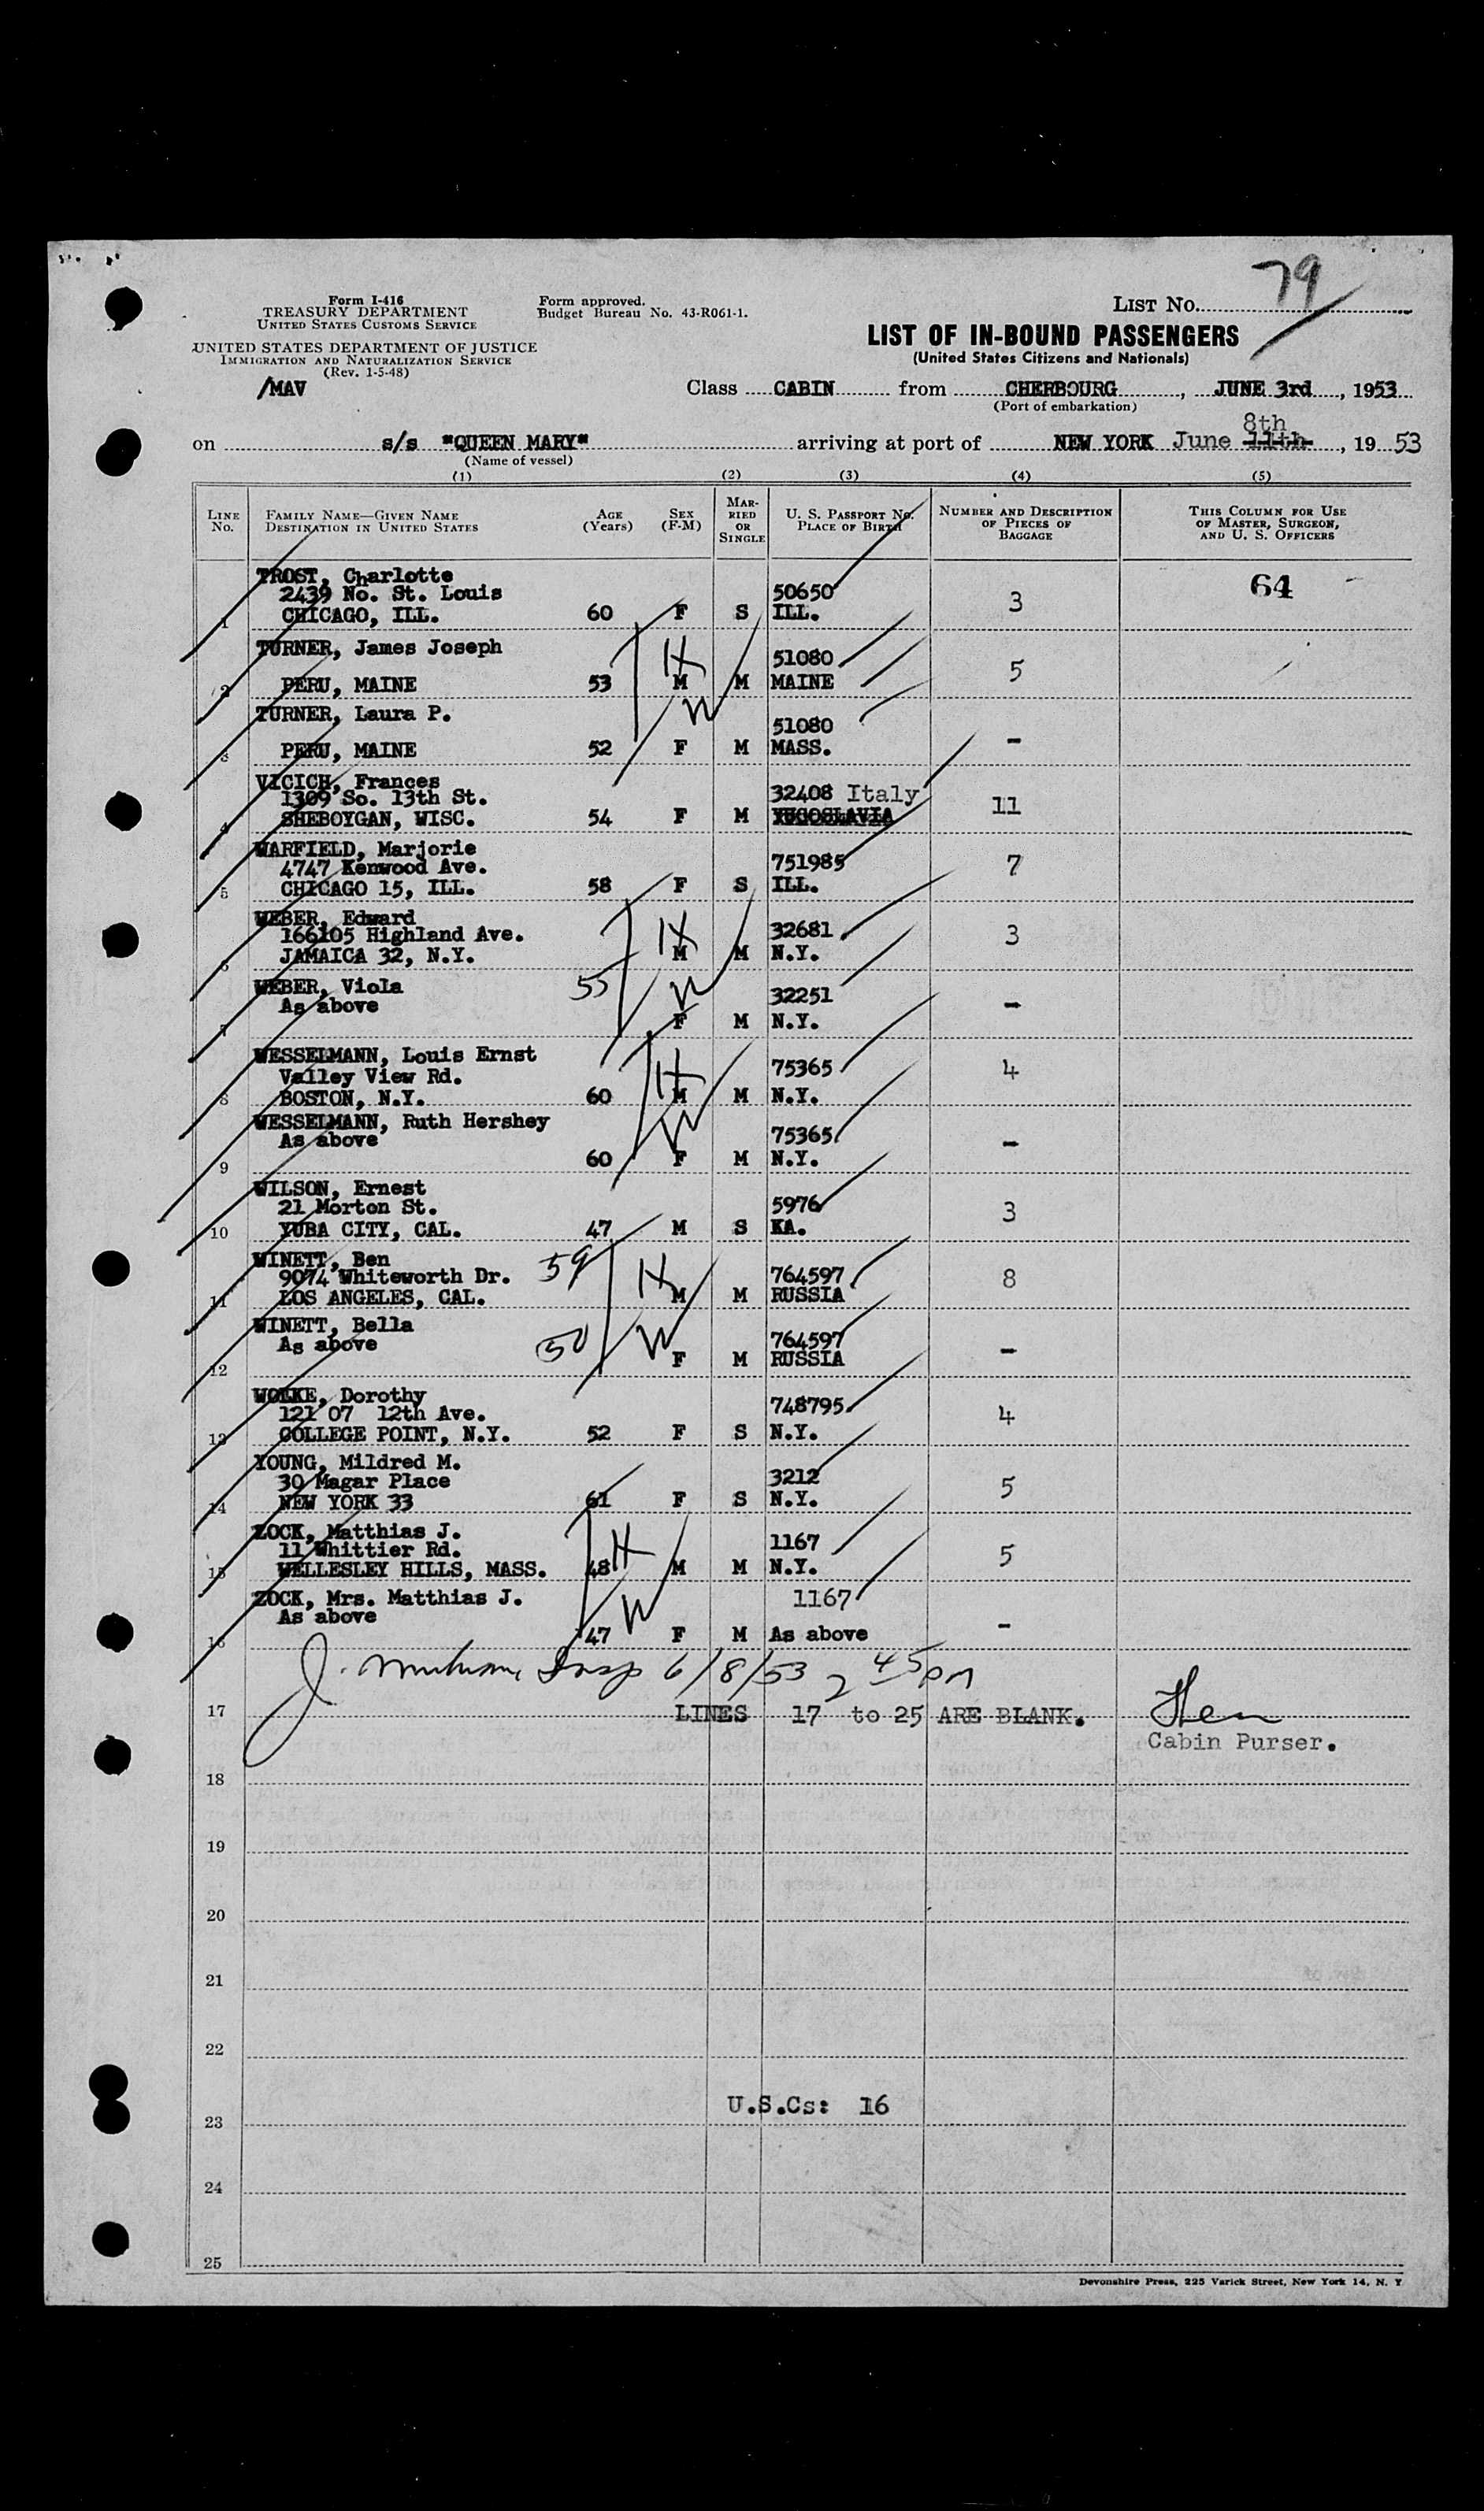 79
Form I-416
TREASURY DEPARTMENT
UNITED STATES CUSTOMS SERVICE
UNITED STATES DEPARTMENT OF JUSTICE
IMMIGRATION AND NATURALIZATION SERVICE
(Rev. 1-5-48)
/MAV
Form approved.
Budget Bureau No. 43-R061-1.
LIST No.
LIST OF IN-BOUND PASSENGERS
(United States Citizens and Nationals)
Class CABIN from CHERBOURG, JUNE 3rd, 1953
(Port of embarkation)
8th
on s/s "QUEEN MARY" arriving at port of NEW YORK June 11th, 1953
(Name of vessel)
(1) (2) (3) (4) (5)
LINE No. FAMILY NAME—GIVEN NAME DESTINATION IN UNITED STATES AGE (Years) SEX (F-M) MARRIED OR SINGLE U. S. PASSPORT No. PLACE OF BIRTH NUMBER AND DESCRIPTION OF PIECES OF BAGGAGE THIS COLUMN FOR USE OF MASTER, SURGEON, AND U. S. OFFICERS
TROST, Charlotte 64
2439 No. St. Louis 50650 3
1 CHICAGO, ILL. 60 F S ILL.
TURNER, James Joseph H 51080 5
2 PERU, MAINE 53 M M MAINE
TURNER, Laura P. W 51080
3 PERU, MAINE 52 F M MASS. -
VICICH, Frances
1309 So. 13th St. 32408 Italy 11
4 SHEBOYGAN, WISC. 54 F M YUGOSLAVIA
WARFIELD, Marjorie
4747 Kenwood Ave. 751985 7
5 CHICAGO 15, ILL. 58 F S ILL.
WEBER, Edward
166105 Highland Ave. H 32681 3
6 JAMAICA 32, N.Y. M M N.Y.
WEBER, Viola 55 W 32251
As above -
7 F M N.Y.
WESSELMANN, Louis Ernst
Valley View Rd. H 75365 4
8 BOSTON, N.Y. 60 M M N.Y.
WESSELMANN, Ruth Hershey W 75365
As above -
9 60 F M N.Y.
WILSON, Ernest
21 Morton St. 5976 3
10 YUBA CITY, CAL. 47 M S KA.
WINETT, Ben 59
9074 Whiteworth Dr. H 764597 8
11 LOS ANGELES, CAL. M M RUSSIA
WINETT, Bella
As above 50 W 764597 -
12 F M RUSSIA
WOLKE, Dorothy
121 07 12th Ave. 748795 4
13 COLLEGE POINT, N.Y. 52 F S N.Y.
YOUNG, Mildred M.
30 Magar Place 3212 5
14 NEW YORK 33 61 F S N.Y.
ZOCK, Matthias J.
11 Whittier Rd. H 1167 5
15 WELLESLEY HILLS, MASS. 48 M M N.Y.
ZOCK, Mrs. Matthias J. W 1167
As above -
16 47 F M As above
J. Insp 6/8/53 2 45 PM
17 LINES 17 to 25 ARE BLANK.
Cabin Purser.
18
19
20
21
22
U.S.Cs: 16
23
24
25
Devonshire Press, 225 Varick Street, New York 14, N. Y